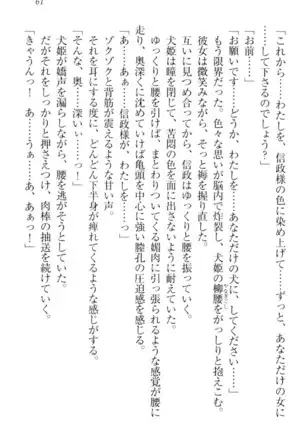 61
「これから……わたしを、信政様の色に染め上げて……ずっと、あなただけの女に
……して下さるのでしょう？」
「お前……」
「お願いです……わたしを……あなただけの犬に、してください……」
もう限界だった。色々な思いが脳内で炸裂し、犬姫の柳腰をがっしりと抱えこむ。
彼女は微笑みながら、そっと褥を握り直した。
互いに見つめ合ってから、信政はゆっくりと腰を振っていく。
犬姫は瞳を閉じて、苦悶の色を面に浮かべないように耐えていた。
ゆっくりと腰を引けば、まとわりついてくる媚肉に引っ張られるような感覚が腰に
走り、奥深くに沈めていけば亀頭を中心に強い膣孔の圧迫感を感じる。
「あ……あぁ……信政様が、わたしを……っ」
ゾクゾクと背筋が震えるような甘い声。
それを耳にする度に、どんどん下半身が痺れてくるような感じがする。
「そんな、奥……深いぃ……っ」
犬姫が嬌声を漏らしながら、腰を逃がそうとしていた。
だがそれをしっかりと押さえつけ、肉棒の抽送を続けていく。
「きゃうんっ！　あ……う……あ、あぁっ！」